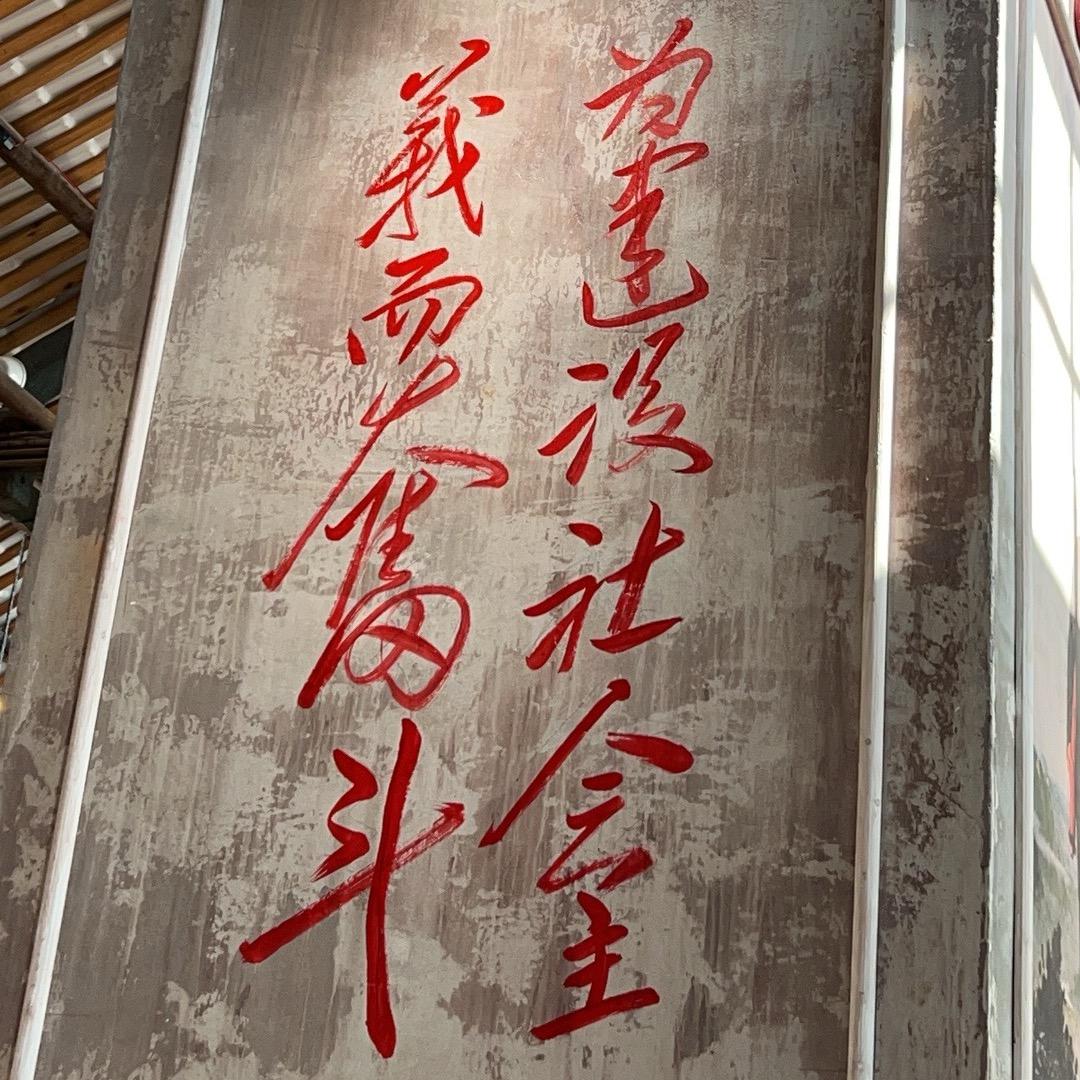 为建设社会主
義而奮斗